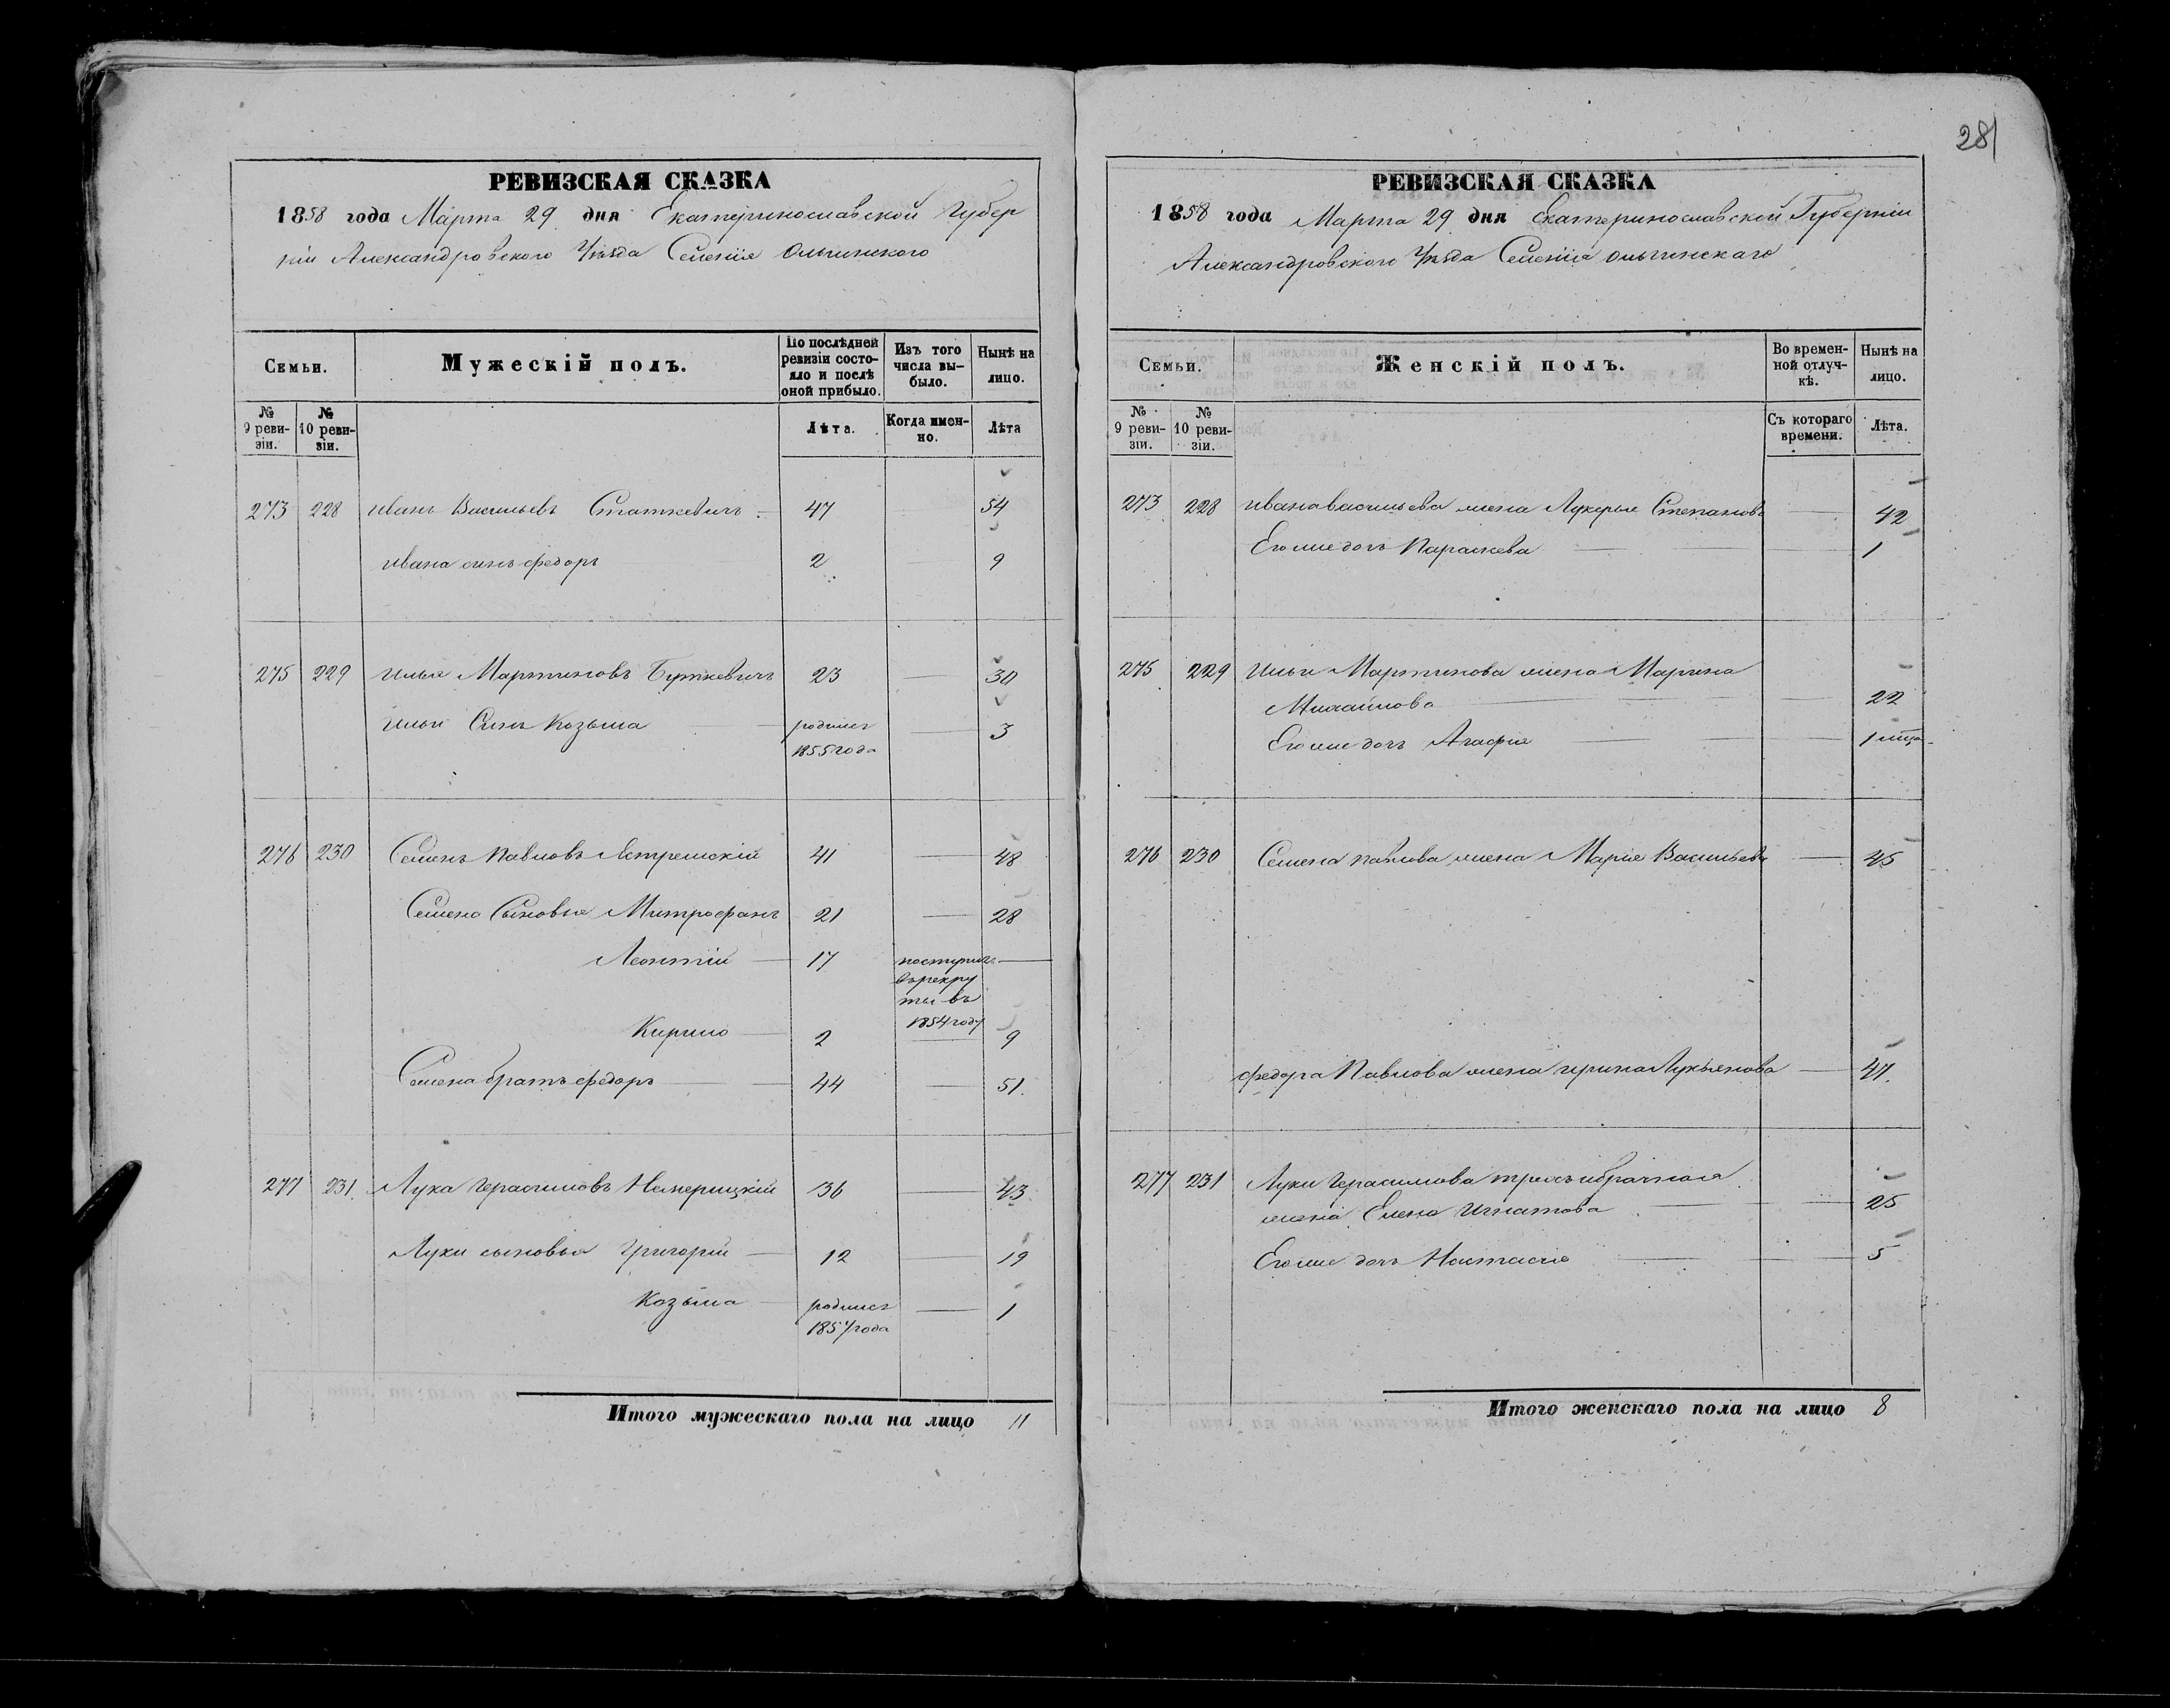 281
РЕВИЗСКАЯ СКАЗКА
1858 года Марта 29 дня Екатеринославской Губер
ніи Александровского Уѣзда Селенія Ольгинского
Семьи.
Мужескій полъ.
По послѣдней ревизіи состояло и послѣ оной прибыло.
Изъ того числа выбыло.
Нынѣ на лицо.
№ 9 ревизіи.
№ 10 ревизіи.
Лѣта.
Когда именно.
Лѣта
273 228 иванъ Васильевъ Статкевичъ 47 54
ивана синъ федоръ 2 9
275 229 илья Мартиновъ Буткевичъ 23 30
ильи Синъ Козьма родился 3
1855 года
276 230 Семенъ Павловъ 41 48
Семена Сыновья Митрофанъ 21 28
Леонтій 17 поступилъ
в рекру
ты въ
1854 году
Кирило 2 9
Семена братъ федоръ 44 51.
277 231. Лука Герасимовъ 36 43
Луки сыновья Григорій 12 19
Козьма родился 1
1857 года
Итого мужескаго пола на лицо 11
РЕВИЗСКАЯ СКАЗКА
1858 года Марта 29 дня Екатеринославской Губерніи
Александровского Уѣзда Селенія Ольгинскаго
Семьи.
Женскій полъ.
Во временной отлучкѣ.
Нынѣ на лицо.
№ 9 ревизіи.
№ 10 ревизіи.
Съ котораго времени.
Лѣта.
273 228 ивана васильева жена Лукерья Степанова 42
Его же дочь Параскева 1
275 229 Ильи Мартинова жена Марина
Михайлова 22
Его же дочь Агафія 1 мѣца
276 230 Семена павлова жена Марія Васильева 45
федора Павлова жена ирина Лукьянова 47.
277 231 Луки Герасимова
жена Елена Игнатова 25
Его же дочь Настасія 5
Итого женскаго пола на лицо 8